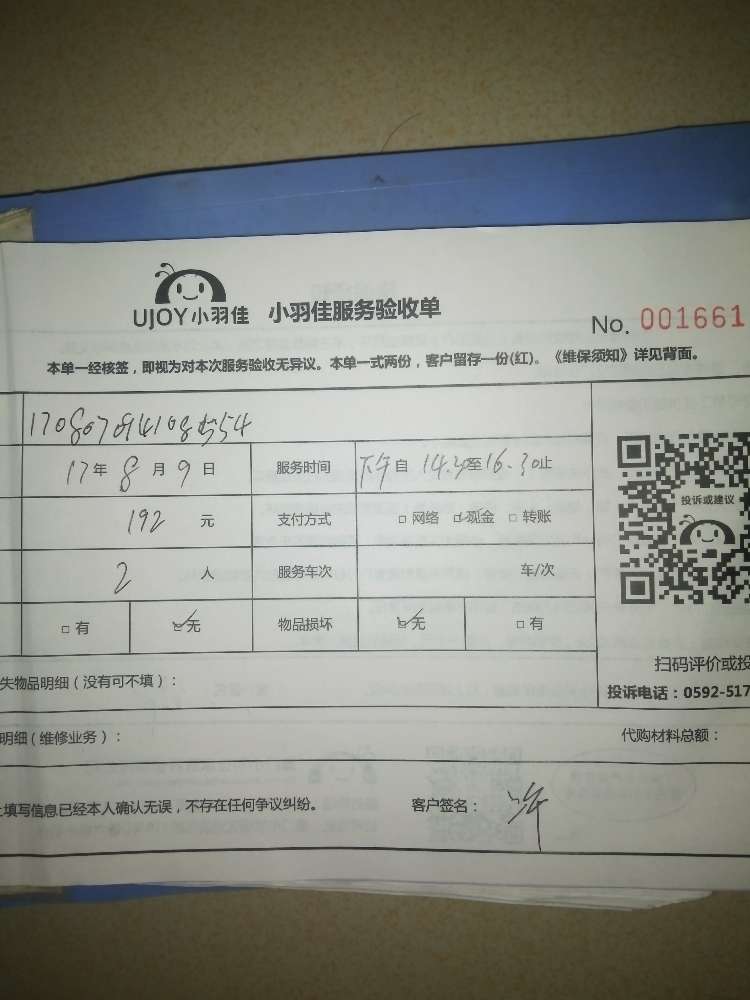 UJOY小羽佳 小羽佳服务验收单
No. 001661
本单一经核签，即视为对本次服务验收无异议。本单一式两份，客户留存一份(红)。《维保须知》详见背面。
17年8月9日 服务时间 下午自14.30至16.30止
192元 支付方式 □网络 ☑现金 □转账
投诉或建议
2人 服务车次 车/次
□有 ☑无 物品损坏 ☑无 □有
扫码评价或投
失物品明细（没有可不填）：
投诉电话：0592-517
明细（维修业务）： 代购材料总额：
填写信息已经本人确认无误，不存在任何争议纠纷。 客户签名：许